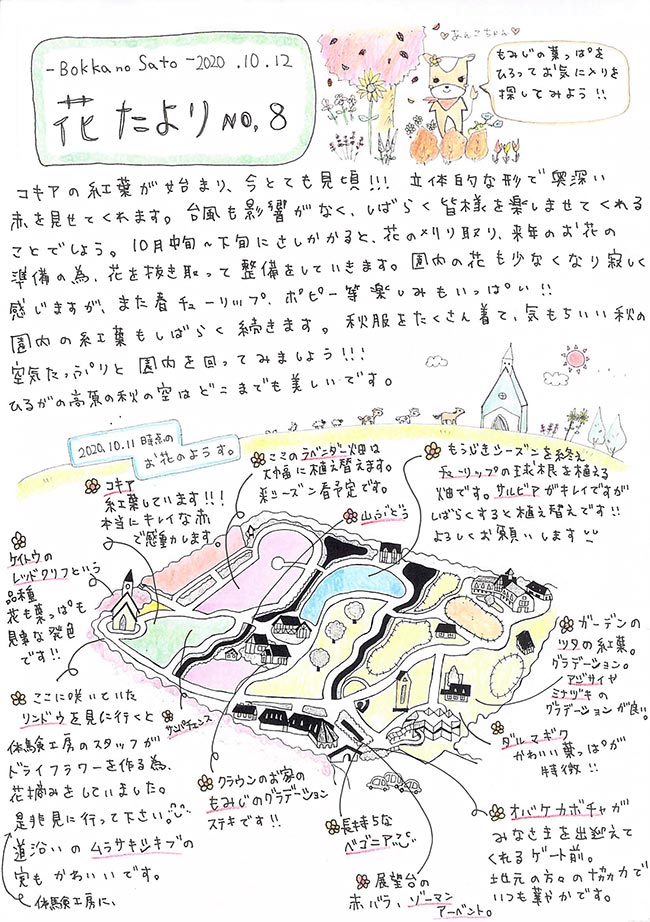 -Bokka no Sato -2020 .10.12
花たより NO.8
♡あんこちゃん♡
もみじの葉っぱを
ひろってお気に入りを
探してみよう!!
コキアの紅葉が始まり、今とても見頃!!! 立体的な形で奥深い
赤を見せてくれます。台風も影響がなく、しばらく皆様を楽しませてくれる
ことでしょう。10月中旬〜下旬にさしかかると、花のメリり取り、来年のお花の
準備の為、花を抜き取って整備をしていきます。園内の花も少なくなり寂しく
感じますが、また春チューリップ、ポピー等楽しみもいっぱい!!
園内の紅葉もしばらく続きます。秋服をたくさん着て、気もちいい秋の
空気たっぷりと園内を回ってみましょう!!!
ひるがの高原の秋の空はどこまでも美しいです。
2020.10.11時点の
お花のようす。
コキア
紅葉しています!!!
本当にキレイな赤
で感動します。
ここのラベンダー畑は
大幅に植え替えます。
来シーズン春予定です。
山ぶどう
もうじきシーズンを終え
チューリップの球根を植える
畑です。サルビアがキレイですが
しばらくすると植え替えです!!
よろしくお願いします
ケイトウの
レッドクリフという
品種
花も葉っぱも
見事な発色
です!!
ここに咲いていた
リンドウを見に行くと
体験工房のスタッフが
ドライフラワーを作る為、
花摘みをしていました。
是非見に行って下さい。
道沿いのムラサキシキブの
実もかわいいです。
体験工房に、
サンパチェンス
クラウンのお家の
もみじのグラデーション
ステキです!!
長持ちな
ベゴニア
展望台の
赤バラ、ゾーマン
アーベント。
ガーデンの
ツタの紅葉。
グラデーション。
アジサイや
ミナヅキの
グラデーションが良い。
ダルマギク
かわいい葉っぱが
特徴!!
オバケカボチャが
みなさまを出迎えて
くれるゲート前。
地元の方々の協力で
いつも華やかです。